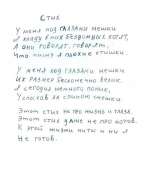 Стих
У меня под глазами мешки
Я кладу в них бездомных котят,
А они говорят, говорят,
Что пишу я плохие стишки.
У меня под глазами мешки
Их размер бесконечно велик.
Я сегодня немного поник,
Уползая за спиною смешки.
Этот стих не про жизнь и глаза.
Этот стих даже не про котов.
К этой жизни никто и ни я
Не готов.